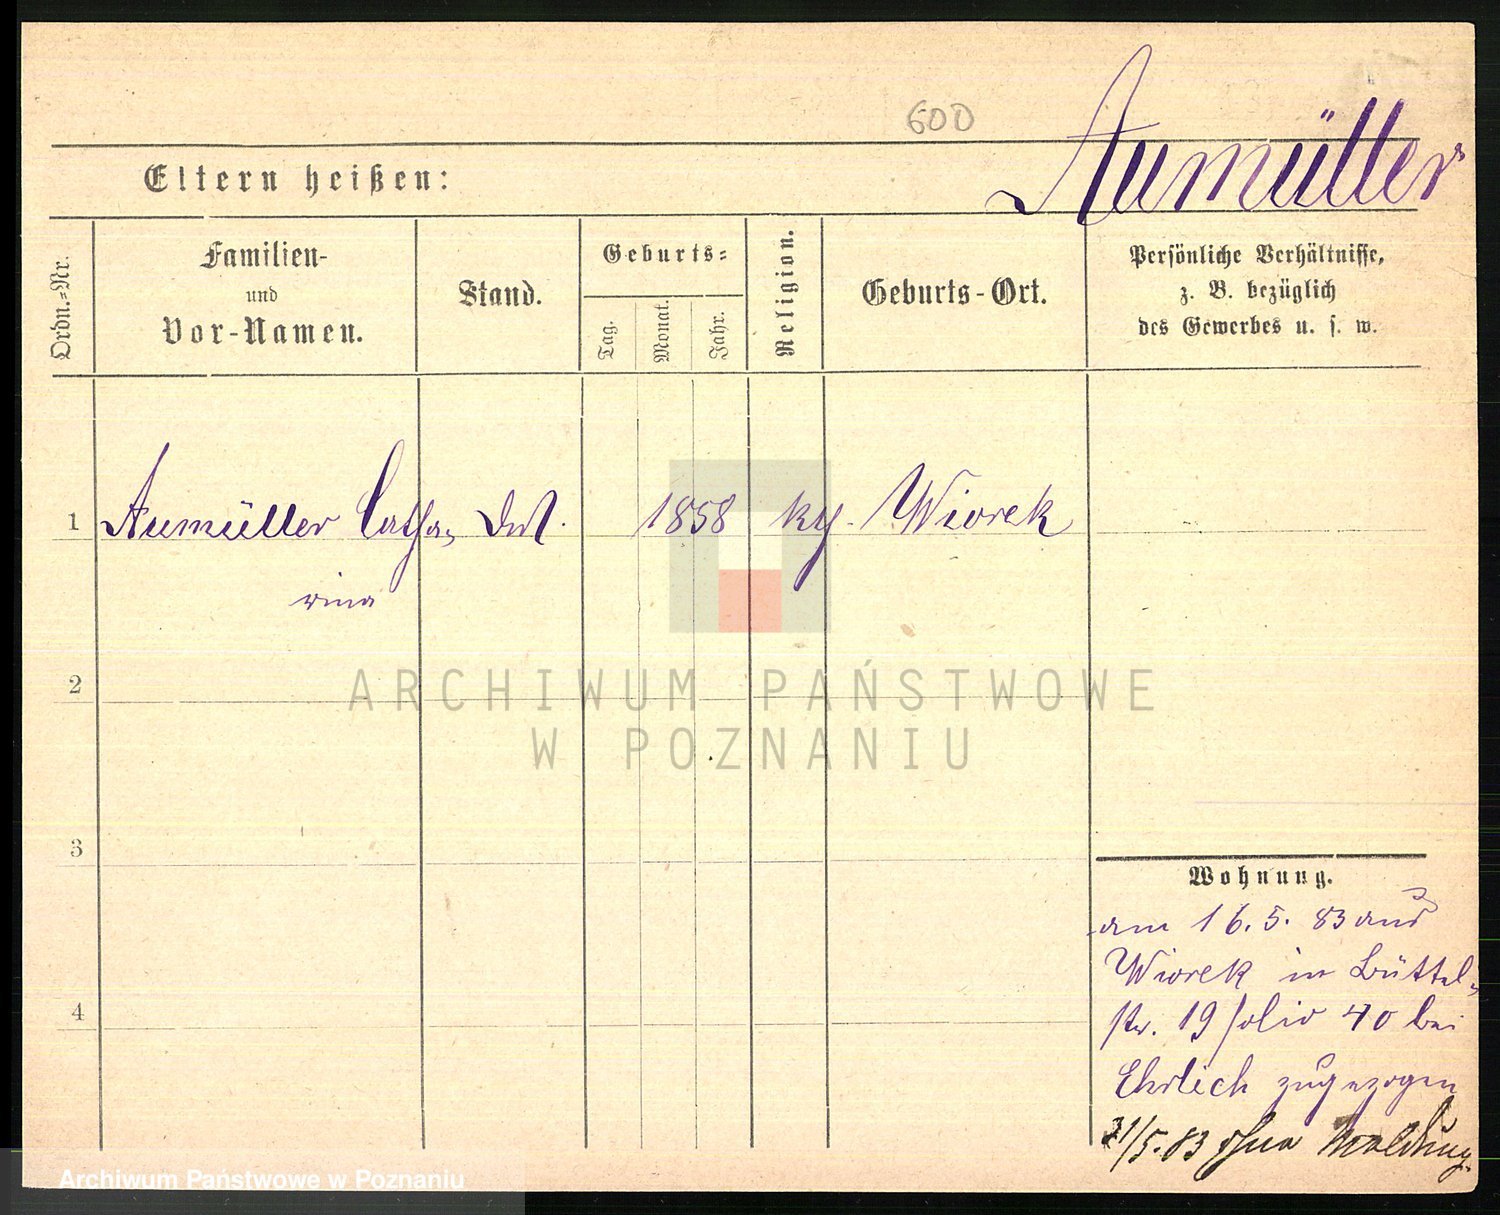 600
Aumüller
Eltern heißen:
Ordn.=Nr.
Familien-
und
Vor-Namen.
Stand.
Geburts=
Tag.
Monat.
Jahr.
Religion.
Geburts-Ort.
Persönliche Verhältnisse,
z. B. bezüglich
des Gewerbes u. s. w.
1 Aumüller Catha, 1858 Wiorek
rina
2
ARCHIWUM PAŃSTWOWE
W POZNANIU
3
Wohnung.
am 16.5.83 aus
Wiorek in Büttel,
4
str. 19 folio 40 bei
Ehrlich zugezogen
31/5.83 ohne Meldung.
Archiwum Państwowe w Poznaniu